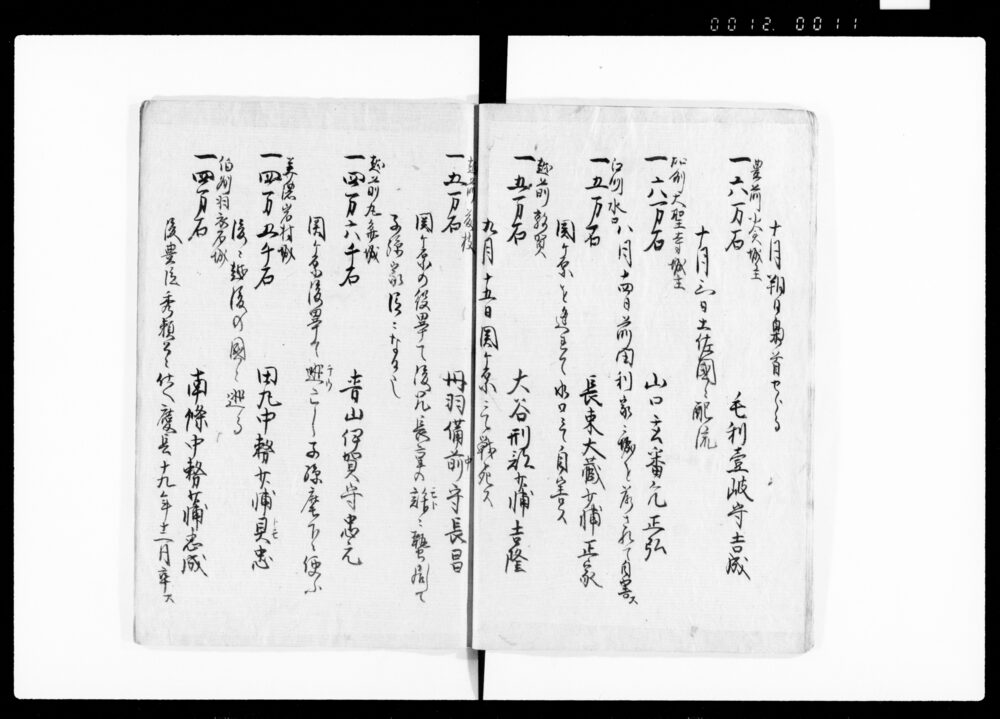 0012. 0011
十月朔日梟首せらる
豊前小倉城主
一六万石 毛利壹岐守吉成
十月三日土佐國ニ配流
加州大聖寺城主
一六万石 山口玄蕃允正弘
八月十四日前田利家ニ城を落されて自害ス
江州水口
一五万石 長束大蔵少輔正家
関ケ原を遁れて水口ニて自害ス
越前敦賀
一五万石 大谷刑部少輔吉隆
九月十五日関ケ原ニて戦死ス
越前
一五万石 丹羽備前守長昌
関ケ原の役畢て後兄長重の許ニ蟄居して
子孫家臣となるよし
越前丸岡城
一四万六千石 青山伊賀守忠元
関ケ原後畢て逝去し子孫麾下ニ使ふ
美濃岩村城
一四万五千石 田丸中務少輔具忠
後ニ越後の國ニ逝る
伯州羽衣石城
一四万石 南條中務少輔忠成
後豊臣秀頼公ニ仕へ慶長十九年十二月卒ス